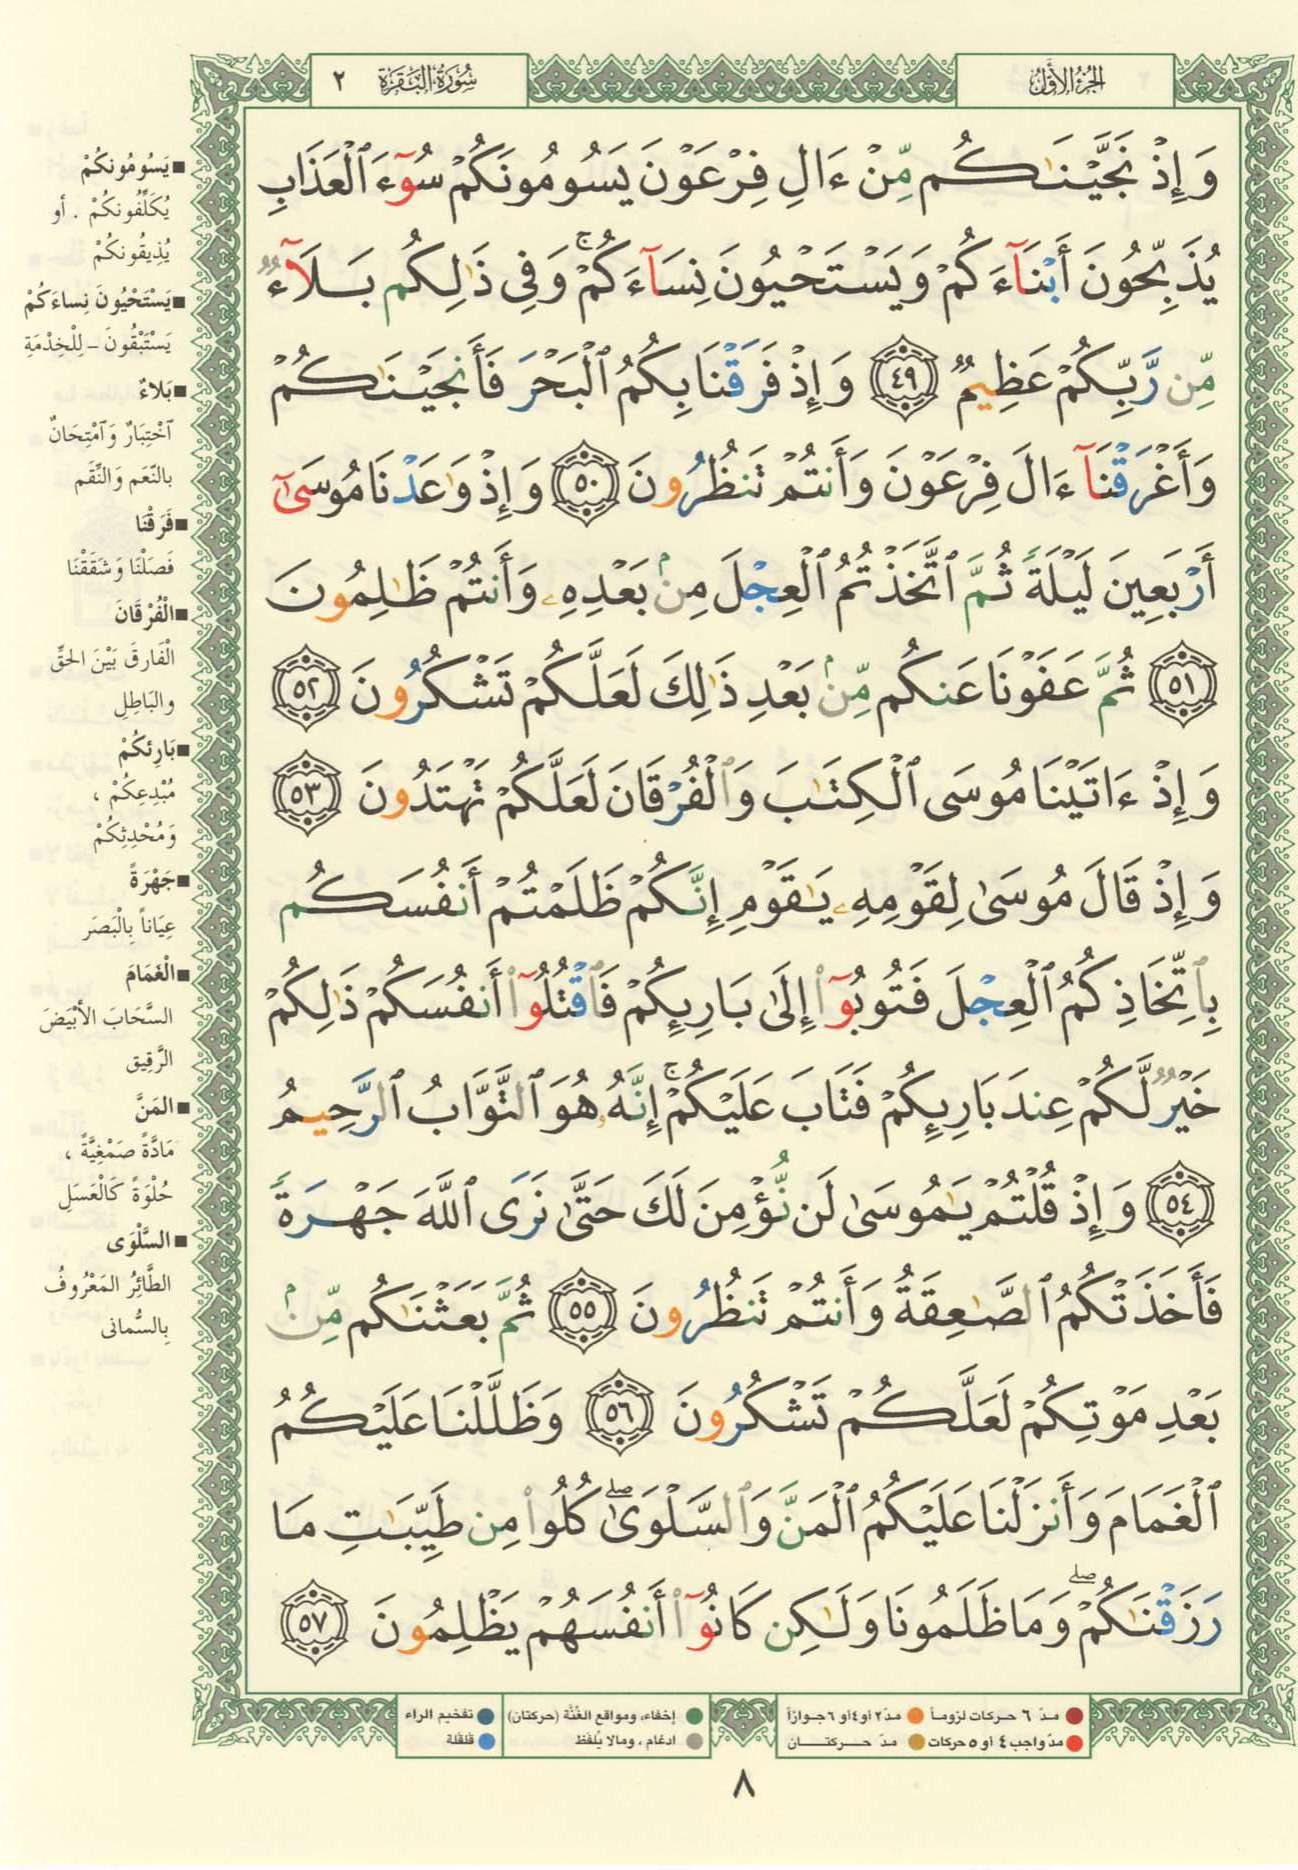 الجزء الأول
سورة البقرة ٢
وَإِذْ نَجَّيْنَٰكُم مِّنْ ءَالِ فِرْعَوْنَ يَسُومُونَكُمْ سُوٓءَ ٱلْعَذَابِ
يُذَبِّحُونَ أَبْنَآءَكُمْ وَيَسْتَحْيُونَ نِسَآءَكُمْ ۚ وَفِى ذَٰلِكُم بَلَآءٌ
مِّن رَّبِّكُمْ عَظِيمٌ ٤٩ وَإِذْ فَرَقْنَا بِكُمُ ٱلْبَحْرَ فَأَنجَيْنَٰكُمْ
وَأَغْرَقْنَآ ءَالَ فِرْعَوْنَ وَأَنتُمْ تَنظُرُونَ ٥٠ وَإِذْ وَٰعَدْنَا مُوسَىٰٓ
أَرْبَعِينَ لَيْلَةً ثُمَّ ٱتَّخَذْتُمُ ٱلْعِجْلَ مِنۢ بَعْدِهِۦ وَأَنتُمْ ظَٰلِمُونَ
٥١ ثُمَّ عَفَوْنَا عَنكُم مِّنۢ بَعْدِ ذَٰلِكَ لَعَلَّكُمْ تَشْكُرُونَ ٥٢
وَإِذْ ءَاتَيْنَا مُوسَى ٱلْكِتَٰبَ وَٱلْفُرْقَانَ لَعَلَّكُمْ تَهْتَدُونَ ٥٣
وَإِذْ قَالَ مُوسَىٰ لِقَوْمِهِۦ يَٰقَوْمِ إِنَّكُمْ ظَلَمْتُمْ أَنفُسَكُم
بِٱتِّخَاذِكُمُ ٱلْعِجْلَ فَتُوبُوٓا۟ إِلَىٰ بَارِئِكُمْ فَٱقْتُلُوٓا۟ أَنفُسَكُمْ ذَٰلِكُمْ
خَيْرٌ لَّكُمْ عِندَ بَارِئِكُمْ فَتَابَ عَلَيْكُمْ ۚ إِنَّهُۥ هُوَ ٱلتَّوَّابُ ٱلرَّحِيمُ
٥٤ وَإِذْ قُلْتُمْ يَٰمُوسَىٰ لَن نُّؤْمِنَ لَكَ حَتَّىٰ نَرَى ٱللَّهَ جَهْرَةً
فَأَخَذَتْكُمُ ٱلصَّٰعِقَةُ وَأَنتُمْ تَنظُرُونَ ٥٥ ثُمَّ بَعَثْنَٰكُم مِّنۢ
بَعْدِ مَوْتِكُمْ لَعَلَّكُمْ تَشْكُرُونَ ٥٦ وَظَلَّلْنَا عَلَيْكُمُ
ٱلْغَمَامَ وَأَنزَلْنَا عَلَيْكُمُ ٱلْمَنَّ وَٱلسَّلْوَىٰ ۖ كُلُوا۟ مِن طَيِّبَٰتِ مَا
رَزَقْنَٰكُمْ ۖ وَمَا ظَلَمُونَا وَلَٰكِن كَانُوٓا۟ أَنفُسَهُمْ يَظْلِمُونَ ٥٧
■ يَسُومُونكُمْ
يُكَلِّفُونكُمْ . أو
يُذِيقُونكُمْ
■ يَسْتَحْيُونَ نِساءَكُمْ
يَسْتَبْقُونَ - لِلْخِدْمَةِ
■ بَلاءٌ
ٱخْتِبَارٌ وَٱمْتِحَانٌ
بالنِّعَم وَالنِّقَم
■ فَرَقْنَا
فَصَلْنَا وَشَقَقْنَا
■ الْفُرْقَانَ
الْفَارِقَ بَيْنَ الحَقِّ
والبَاطِلِ
■ بَارِئِكُمْ
مُبْدِعِكُمْ ،
وَمُحْدِثِكُمْ
■ جَهْرَةً
عِيَاناً بِالْبَصَر
■ الْغَمَامَ
السَّحَابَ الأَبْيَضَ
الرَّقِيق
■ المَنَّ
مَادَّةً صَمْغِيَّةً ،
حُلْوَةً كَالْعَسَلِ
■ السَّلْوَى
الطَّائِرُ المَعْرُوفُ
بِالسُّمانى
مدّ ٦ حركات لزوماً
مدّ ٢ أو ٤ أو ٦ جوازاً
مدّ واجب ٤ أو ٥ حركات
مدّ حركتان
إخفاء، ومواقع الغُنَّة (حركتان)
ادغام ، ومالا يُلفَظ
تفخيم الراء
قلقلة
٨